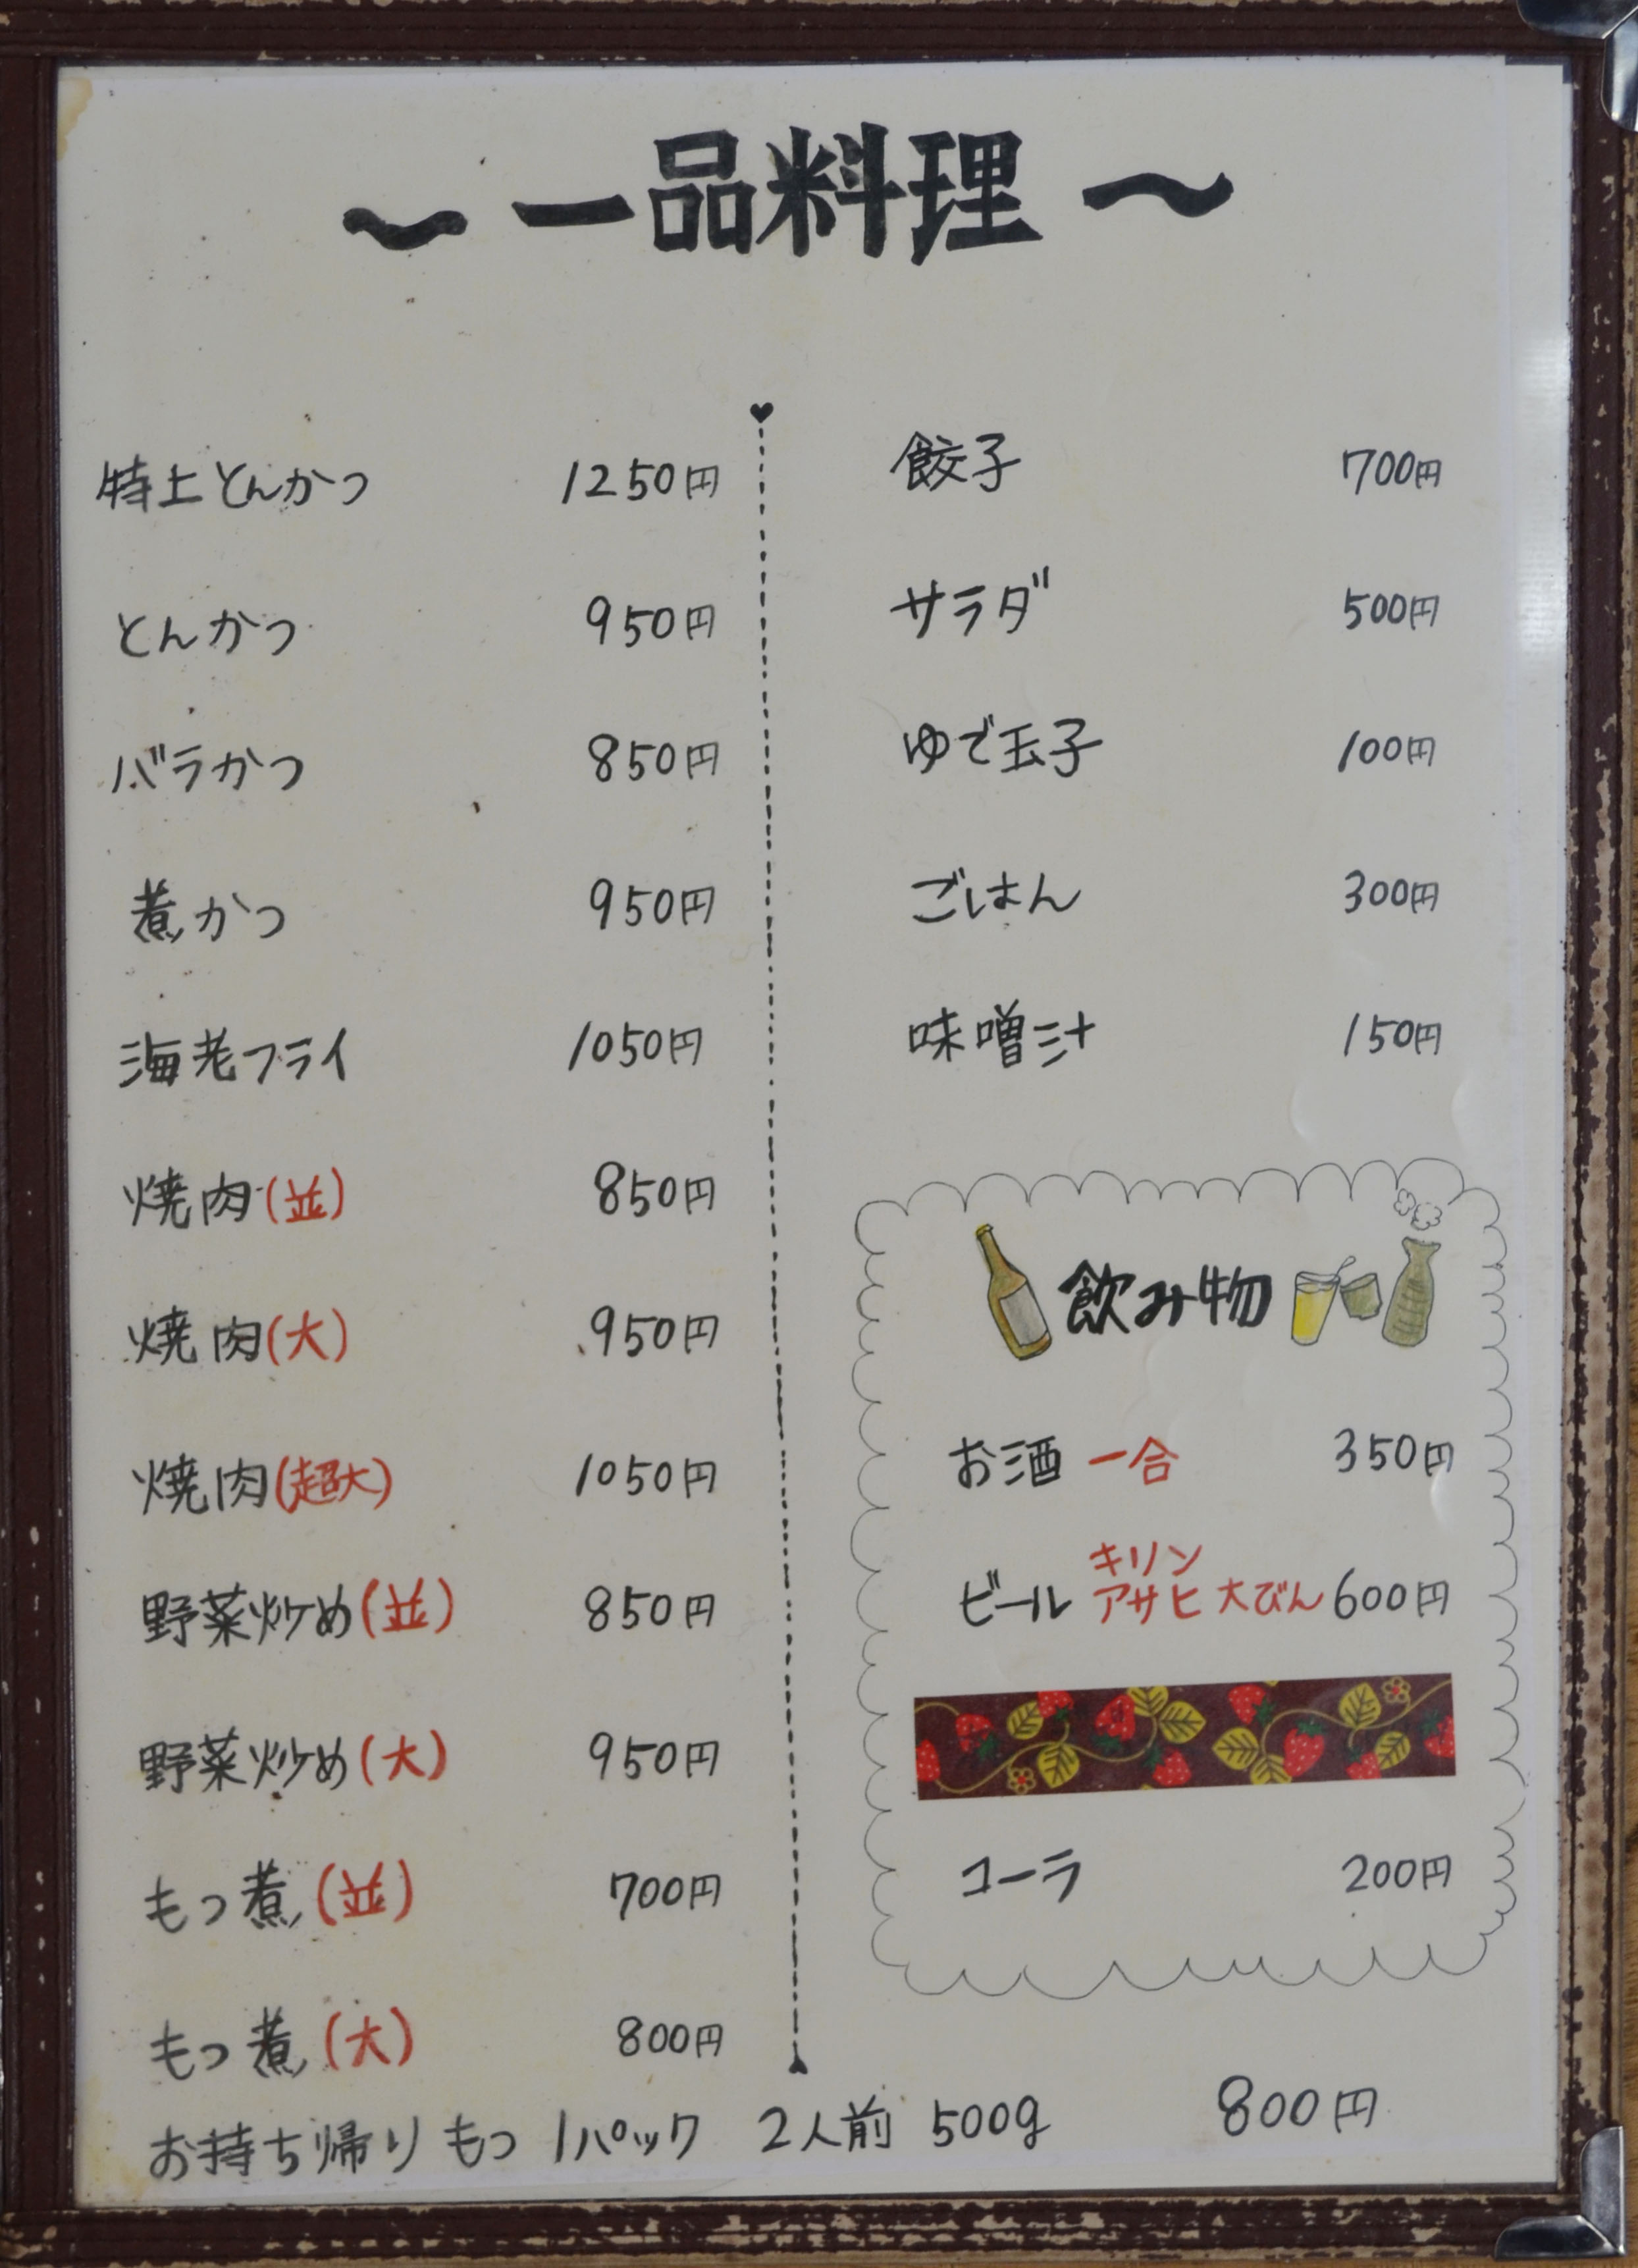 ～一品料理～
特上とんかつ 1250円
とんかつ 950円
バラかつ 850円
煮かつ 950円
海老フライ 1050円
焼肉(並) 850円
焼肉(大) 950円
焼肉(超大) 1050円
野菜炒め(並) 850円
野菜炒め(大) 950円
もつ煮(並) 700円
もつ煮(大) 800円
餃子 700円
サラダ 500円
ゆで玉子 100円
ごはん 300円
味噌汁 150円
飲み物
お酒 一合 350円
キリン
ビール アサヒ 大びん 600円
コーラ 200円
お持ち帰り もつ 1パック 2人前 500g 800円